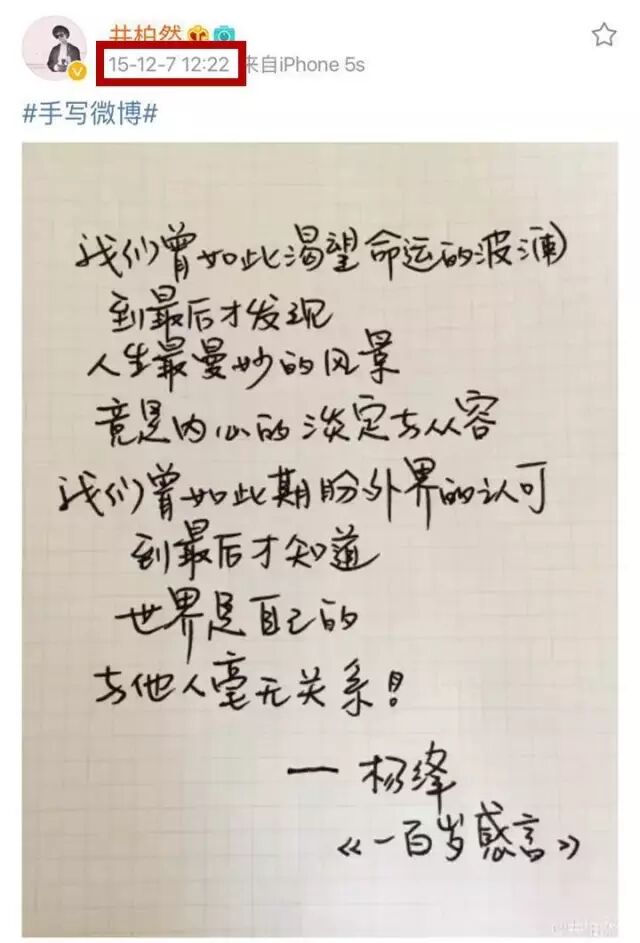 井柏然
15-12-7 12:22 来自iPhone 5s
#手写微博#
我们曾如此渴望命运的波澜
到最后才发现
人生最曼妙的风景
竟是内心的淡定与从容
我们曾如此期盼外界的认可
到最后才知道
世界是自己的
与他人毫无关系！
— 杨绛
《一百岁感言》